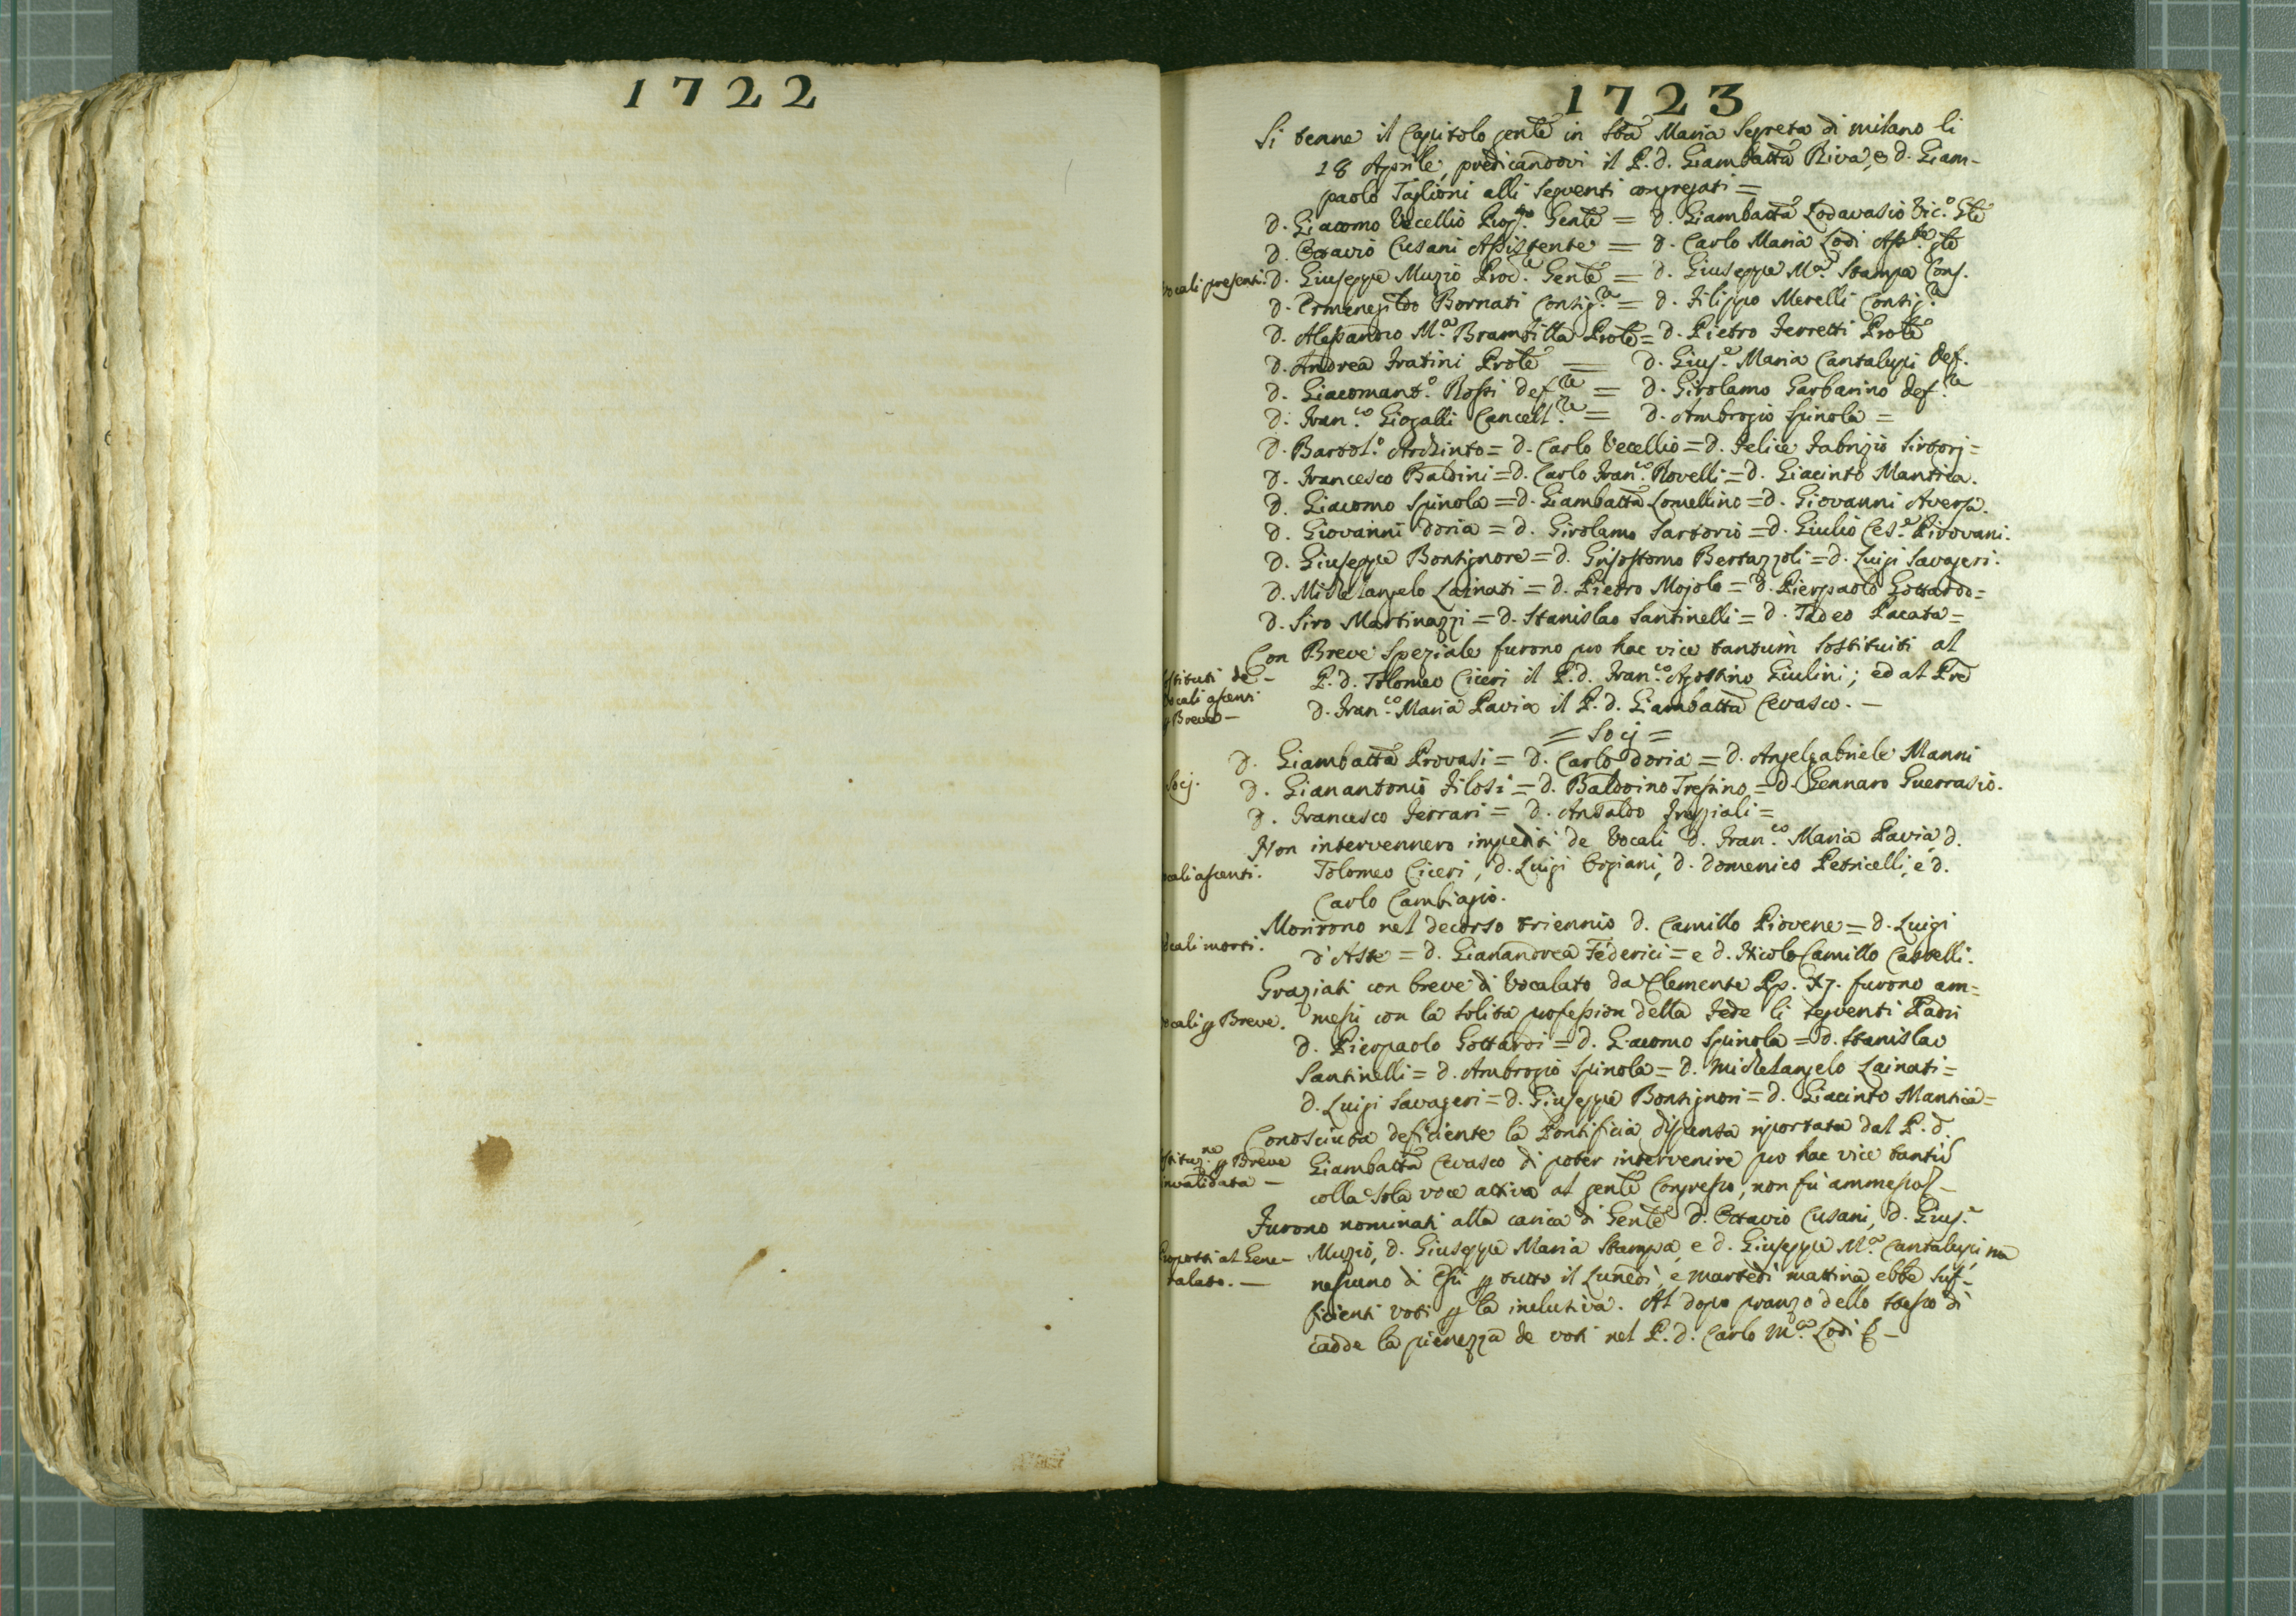 1722
1723
Si tenne il Capitolo genle in Sta Maria Segreta di milano li
18 Aprile, predicandovi il P. d. Giambatta Riva, e d. Giam-
paolo Taglioni alli seguenti congregati =
d. Giacomo Vecellio Genle = d. Giambatta Lodavasio Vic.o Gle
d. Ottavio Cusani Assistente = d. Carlo Maria Lodi Asste gle
vocali presenti. d. Giuseppe Muzio Proc.e Genle = d. Giuseppe M.a Stampa Cons.
d. Ermenegildo Bornati Consig.re = d. Filippo Merelli Consig.re
d. Alessandro M.a Brambilla Prole = d. Pietro Ferretti Prole
d. Andrea Fratini Prole = d. Gius.e Maria Cantalupi def.
d. Giacomant.o Rossi def.re = d. Girolamo Garbarino def.re
d. Fran.co Giogalli Cancell.re = d. Ambrogio Spinola =
d. Bartol.o Archinto = d. Carlo Vecellio = d. Felice Fabrizio Sirtorj =
d. Francesco Baldini = d. Carlo Fran.co Rovelli = d. Giacinto Mantica.
d. Giacomo Spinola = d. Giambatta Lomellino = d. Giovanni Aversa.
d. Giovanni Doria = d. Girolamo Sartorio = d. Giulio Ces.e Pirovani.
d. Giuseppe Bontignore = d. Grisostomo Bertazzoli = d. Luigi Savageri.
d. Michelangelo Lainati = d. Pietro Mojolo = d. Pierpaolo Gottardo =
d. Siro Martinazzi = d. Stanislao Santinelli = d. Tadeo Pacata =
Con Breve speziale furono pro hac vice tantum sostituiti al
ostituti de - P. d. Tolomeo Ciceri il P. d. Fran.co Agostino Giulini; ed al Pre
vocali assenti d. Fran.co Maria Pavia il P. d. Giambatta Cevasco. -
p Breve -
= Socj =
d. Giambatta Provasi = d. Carlo Doria = d. Angelgabriele Manni
Socj. d. Gianantonio Filosi = d. Baldoino Tressino = d. Gennaro Guerrasio.
d. Francesco Ferrari = d. Ansaldo =
Non intervennero impediti de Vocali d. Fran.co Maria Pavia d.
ocali assenti. Tolomeo Ciceri, d. Luigi d. Domenico Petricelli, e d.
Carlo Cambiagio.
Morirono nel decorso triennio d. Camillo Piovene = d. Luigi
ocali morti. d'Aste = d. Gianandrea Federici = e d. Nicolo Camillo Castelli.
Graziati con breve di Vocalato da Clemente Pp. XJ. furono am=
ocali p Breve. messi con la solita professione della Fede li seguenti Padri
d. Pierpaolo Gottardi = d. Giacomo Spinola = d. Stanislao
Santinelli = d. Ambrogio Spinola = d. Michelangelo Lainati =
d. Luigi Savageri = d. Giuseppe Bontignori = d. Giacinto Mantica =
Conosciuta deficiente la Pontificia dispensa riportata dal P. d.
stituz.ne p Breve Giambatta Cevasco di poter intervenire pro hac vice tantu
invalidata - colla sola voce attiva al genle Congresso, non fù ammesso -
Furono nominati alla carica di Genle d. Ottavio Cusani, d. Gius.e
Proposti al Gene- Muzio, d. Giuseppe Maria Stampa, e d. Giuseppe M.a Cantalupi, ma
ralato. - nessuno di essi p tutto il Lunedì, e martedì mattina ebbe suf-
ficienti voti p la inclusiva. Al dopo pranzo dello stesso dì
cadde la pienezza de voti nel P. d. Carlo M.a Lodi